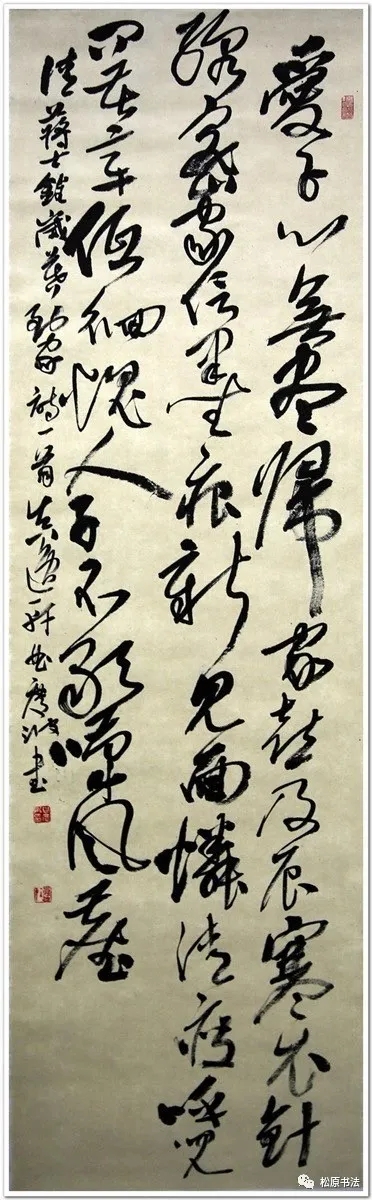 愛子心無盡歸家喜及辰寒衣針
線密家信墨痕新見面憐清瘦呼兒
問苦辛低徊愧人子不敢嘆風塵
清蔣士銓歲暮到家詩一首 逸軒 慶波書
松原书法